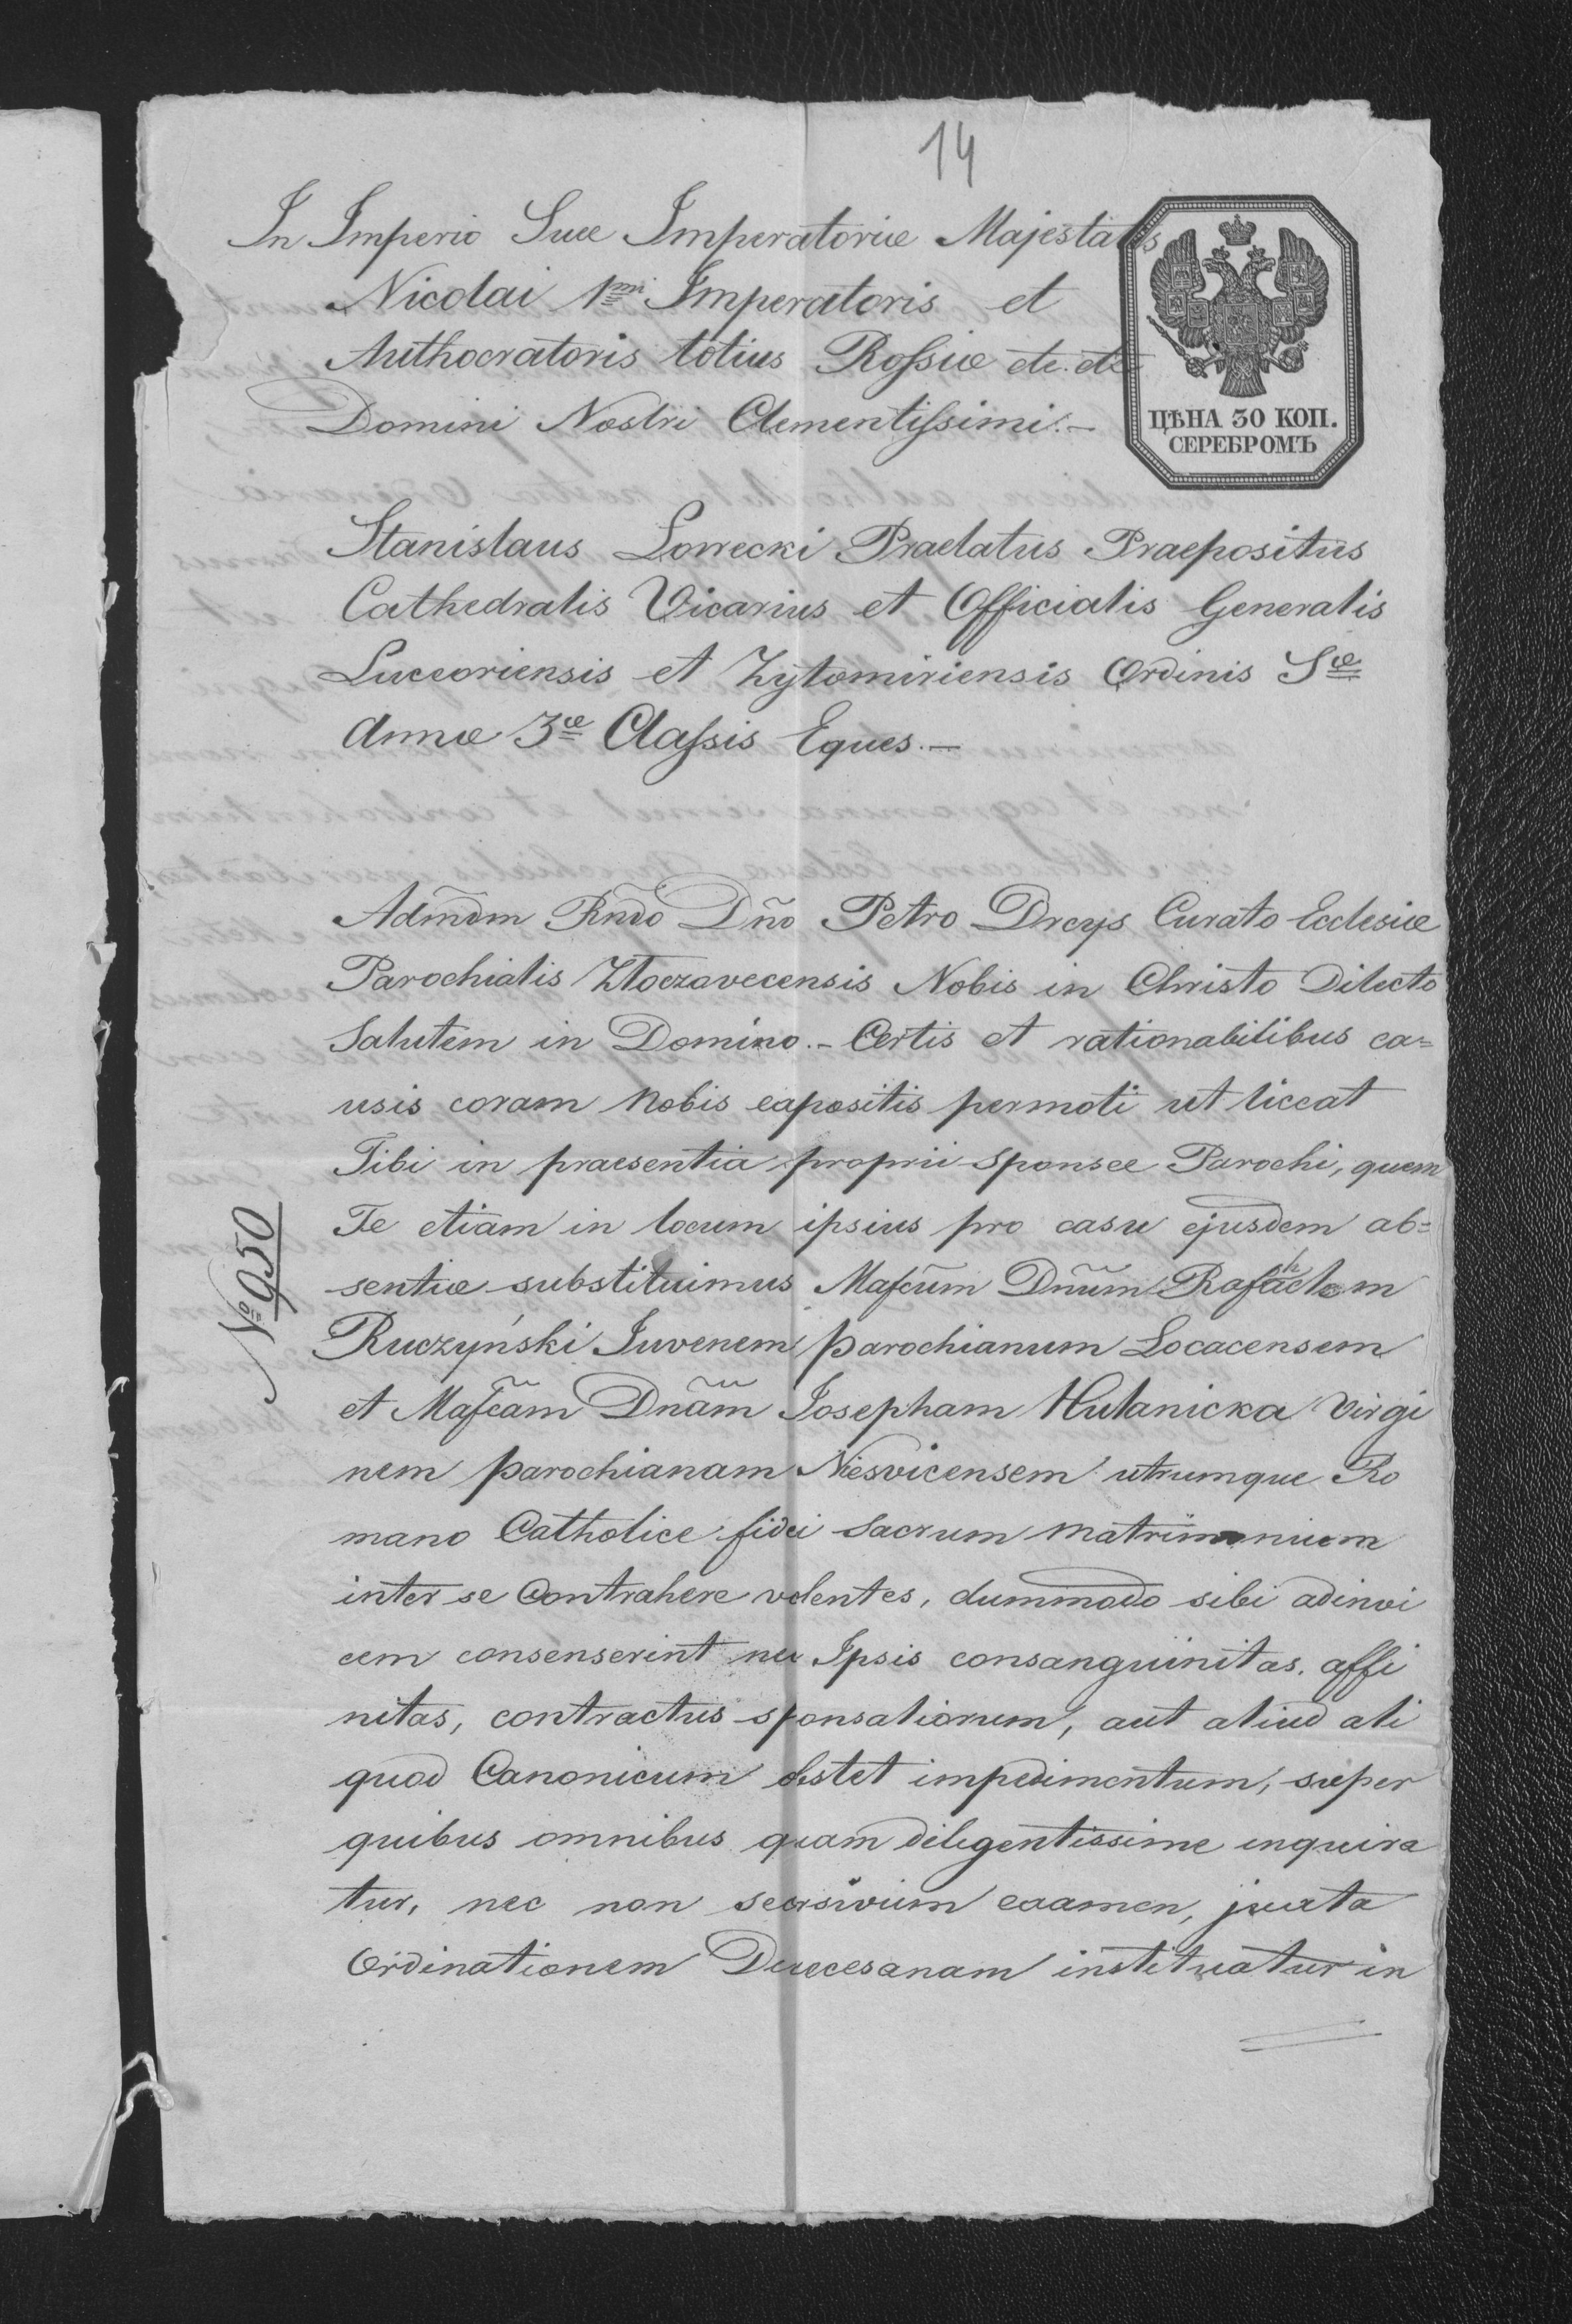 14
In Imperio Suæ Imperatoriæ Majestatis
Nicolai 1mi Imperatoris et
Authocratoris totius Rossiæ etc. etc
Domini Nostri Clementissimi.-
ЦѢНА 30 КОП.
СЕРЕБРОМЪ
Stanislaus Lorrecki Praelatus Praepositus
Cathedralis Vicarius et Officialis Generalis
Luceoriensis et Zytomiriensis Ordinis Sæ
Annæ 3æ Classis Eques.-
Adm̃dm Rñdo Dño Petro Dreys Curato Ecclesiæ
Parochialis Złoczovecensis Nobis in Christo Dilecto
Salutem in Domino.- Certis et rationabilibus ca=
usis coram Nobis expositis permoti ut liceat
Tibi in praesentia proprii Sponsæ Parochi, quem
Te etiam in locum ipsius pro casu ejusdem ab=
sentiæ substituimus Mafcũm Dñum Rafaelem
Ruczyński Juvenem parochianum Locacensem
et Mafcãm Dnãm Josepham Hulanicka Virgi
nem parochianam Niesvicensem utrumque Ro
mano Catholice fidei Sacrum Matrimonium
inter se Contrahere volentes, dummodo sibi adinvi
cem consenserint nec Ipsis consanguinitas, affi
nitas, contractus sponsaliorum, aut aliud ali
quod Canonicum obstet impedimentum, super
quibus omnibus quam diligentissime inquira
tur, nec non seorsivum examen, juxta
Ordinationem Diæcesanam instituatur in
№ 950